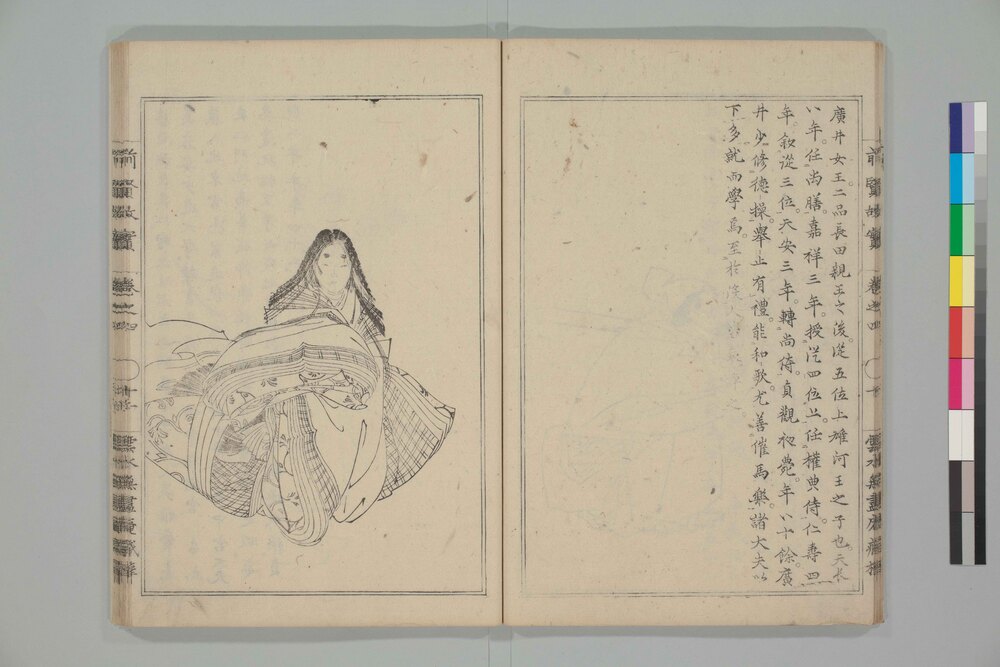 廣井女王二品長田親王之後從五位上雄河王之子也天長
八年任尚膳嘉祥三年授從四位上任權典侍仁壽四
年敘從三位天安三年轉尚侍貞觀初薨年八十餘廣
井少修德操舉止有禮能和歌尤善催馬樂諸大夫以
下多就而學焉至於
前賢故實 卷之四
前賢故實 卷之四